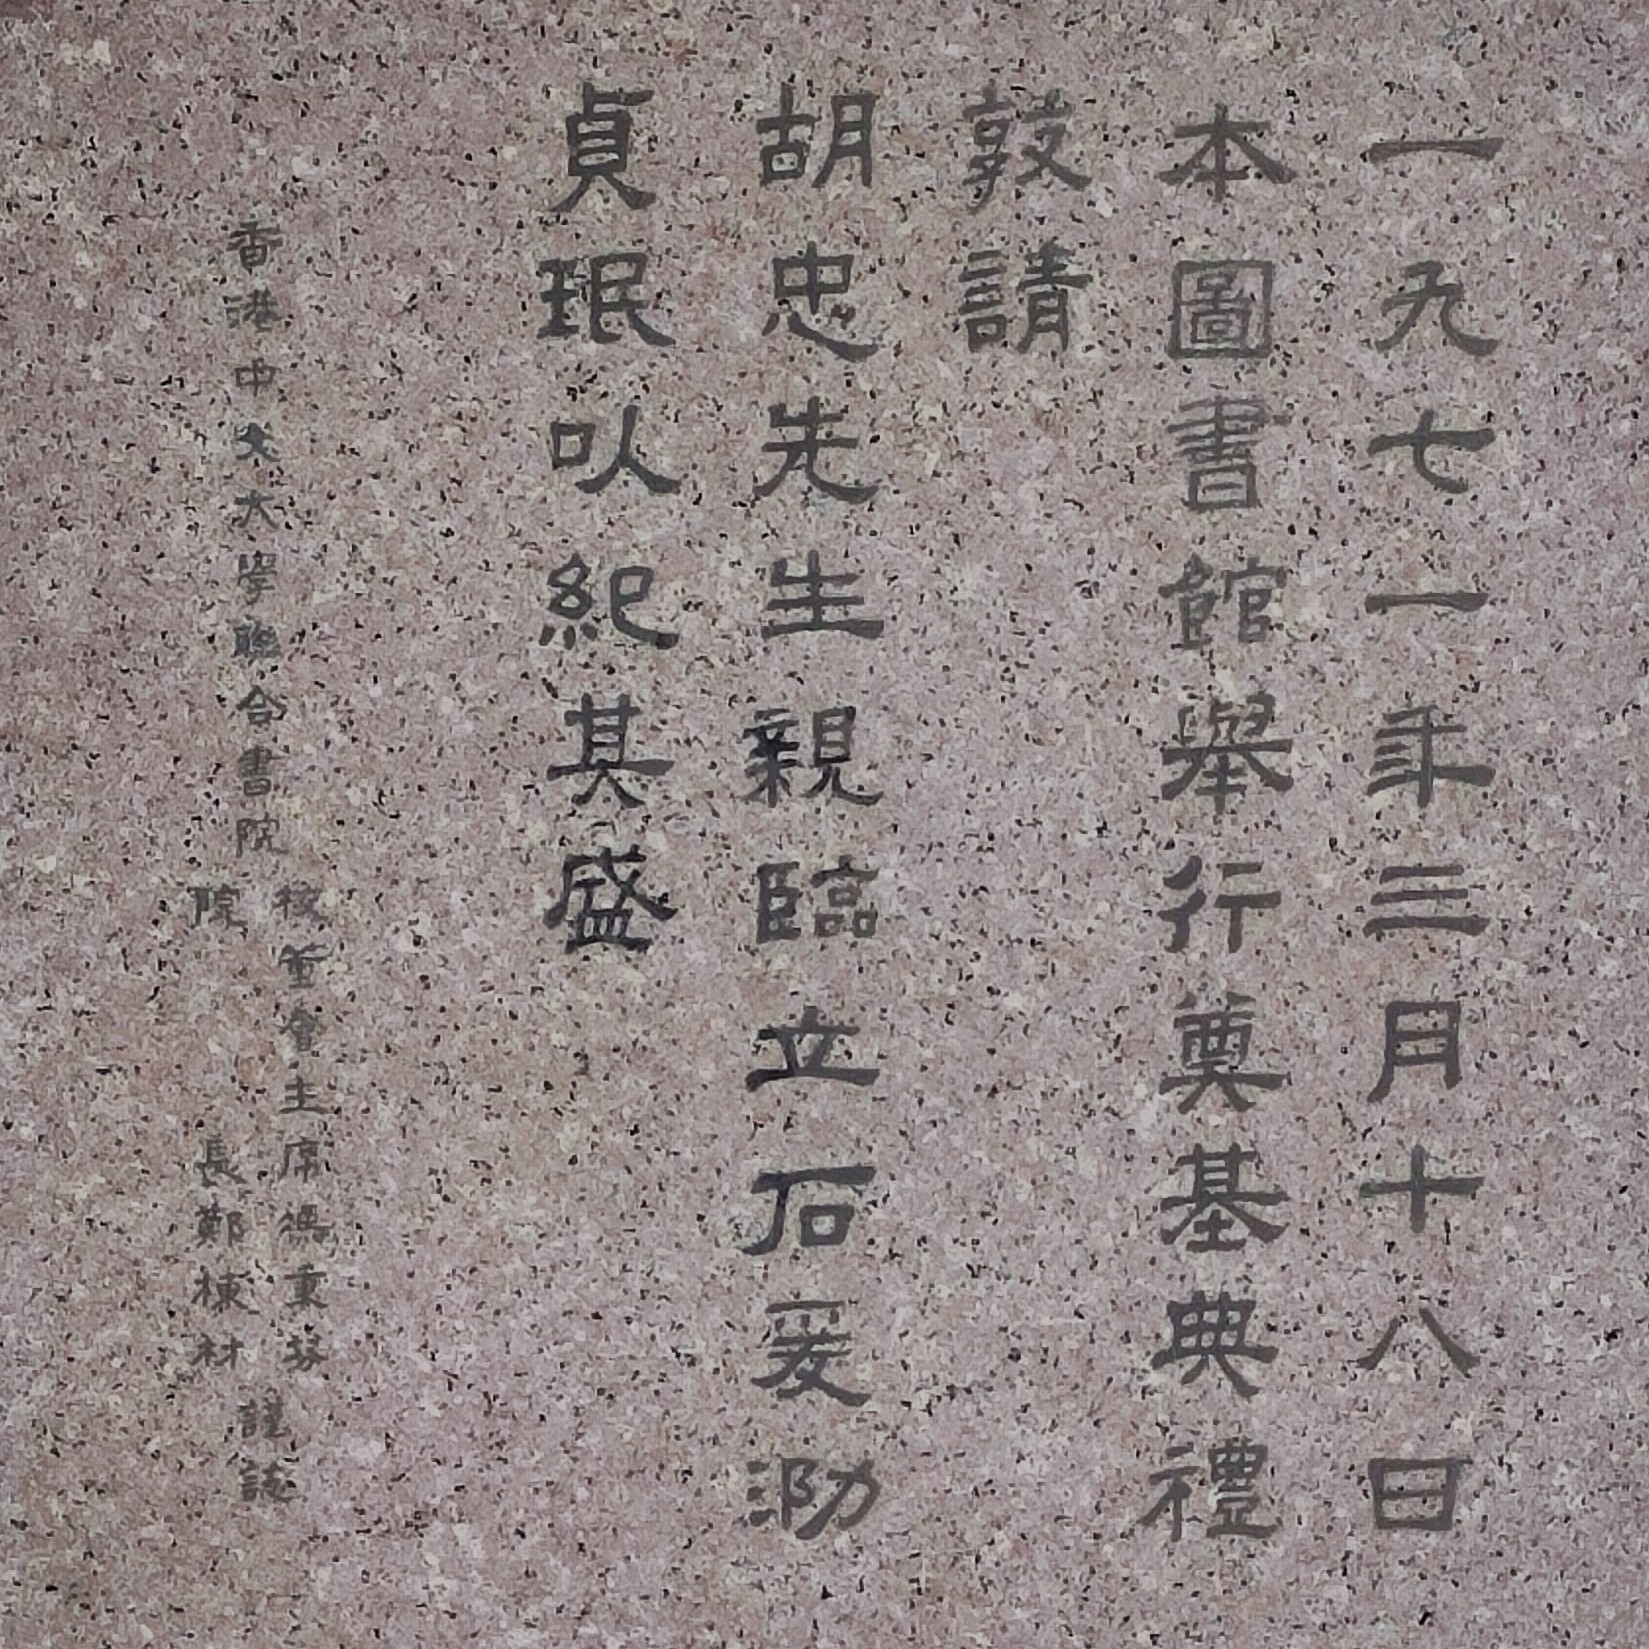 一九七一年三月十八日
本圖書館舉行奠基典禮
敦請
胡忠先生親臨立石爰泐
貞珉以紀其盛
香港中文大學聯合書院
校董會主席馮秉芬
院長鄭棟材
謹誌